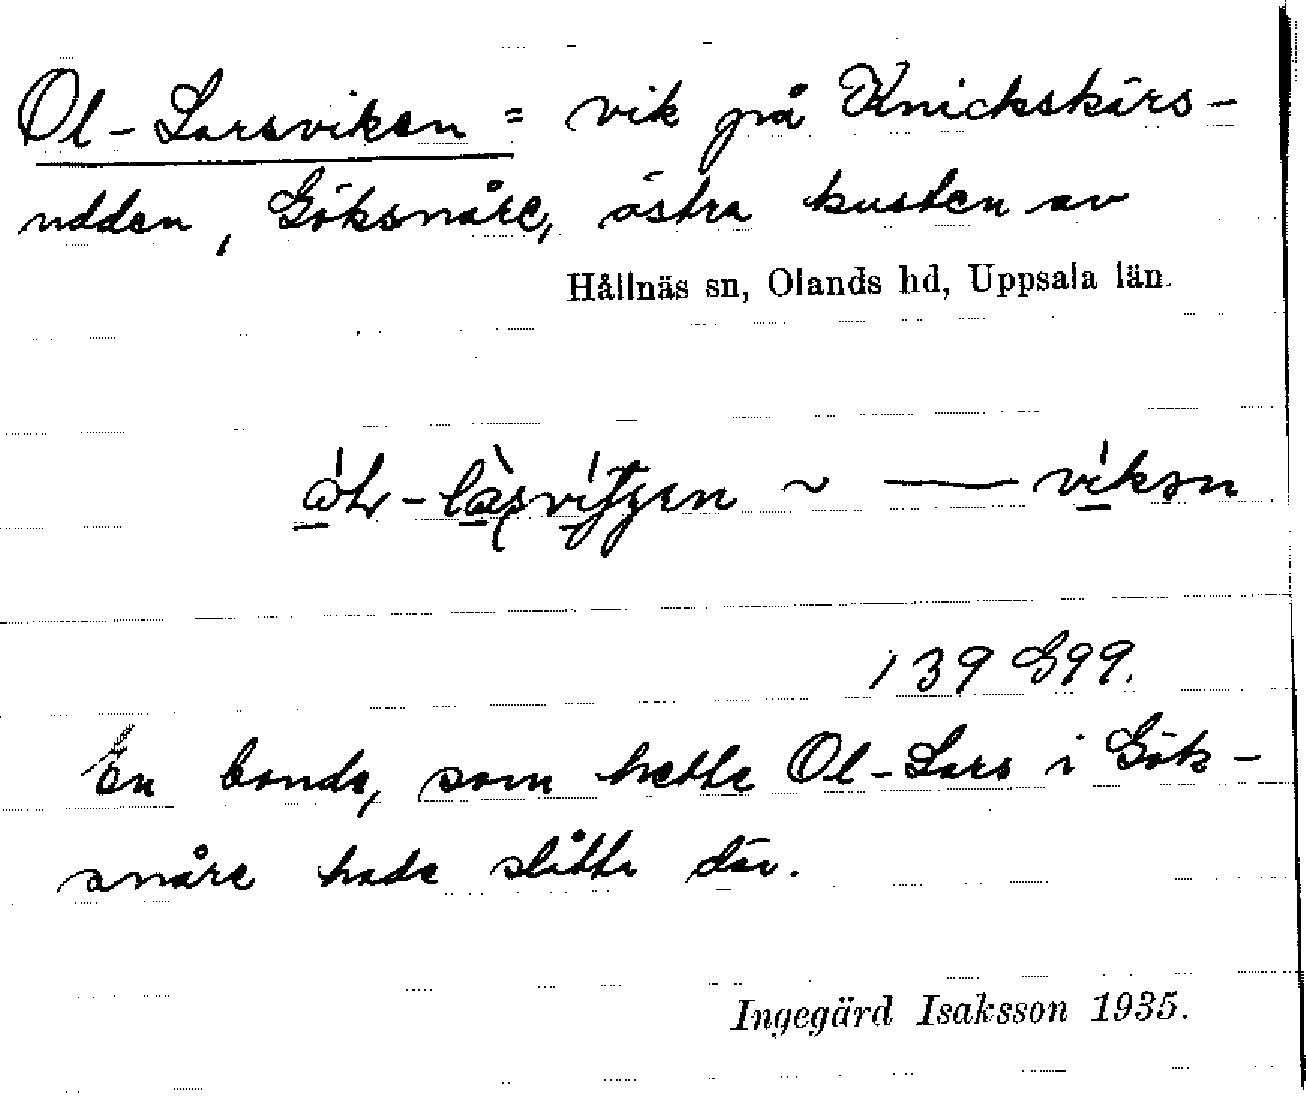 Ol-Larsviken = vik på Knickskärs-
udden, Göksnåre, östra kusten av
Hållnäs sn, Olands hd, Uppsala län.
~ — vikən
139 G99.
En bonde, som hette Ol-Lars i Gök-
snåre hade slåtte där.
Ingegärd Isaksson 1935.